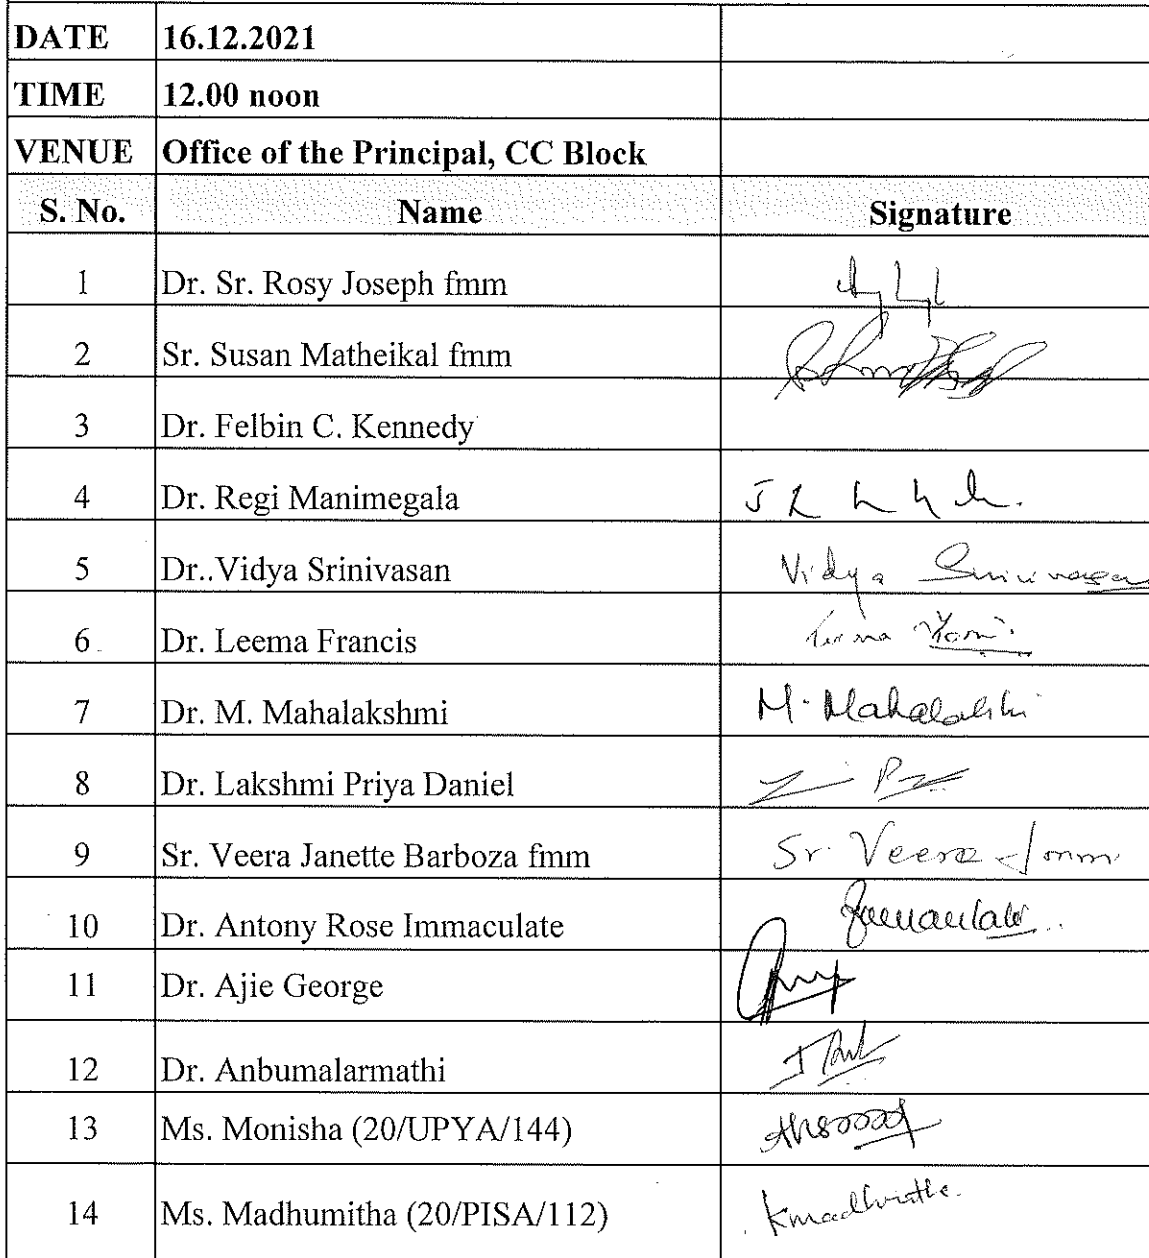 DATE 16.12.2021
TIME 12.00 noon
VENUE Office of the Principal, CC Block
S. No. Name Signature
1 Dr. Sr. Rosy Joseph fmm
2 Sr. Susan Matheikal fmm
3 Dr. Felbin C. Kennedy
4 Dr. Regi Manimegala
5 Dr..Vidya Srinivasan Vidya Srinivasan
6 Dr. Leema Francis
7 Dr. M. Mahalakshmi M. Mahalakshmi
8 Dr. Lakshmi Priya Daniel
9 Sr. Veera Janette Barboza fmm Sr. Veera fmm
10 Dr. Antony Rose Immaculate
11 Dr. Ajie George
12 Dr. Anbumalarmathi
13 Ms. Monisha (20/UPYA/144)
14 Ms. Madhumitha (20/PISA/112)